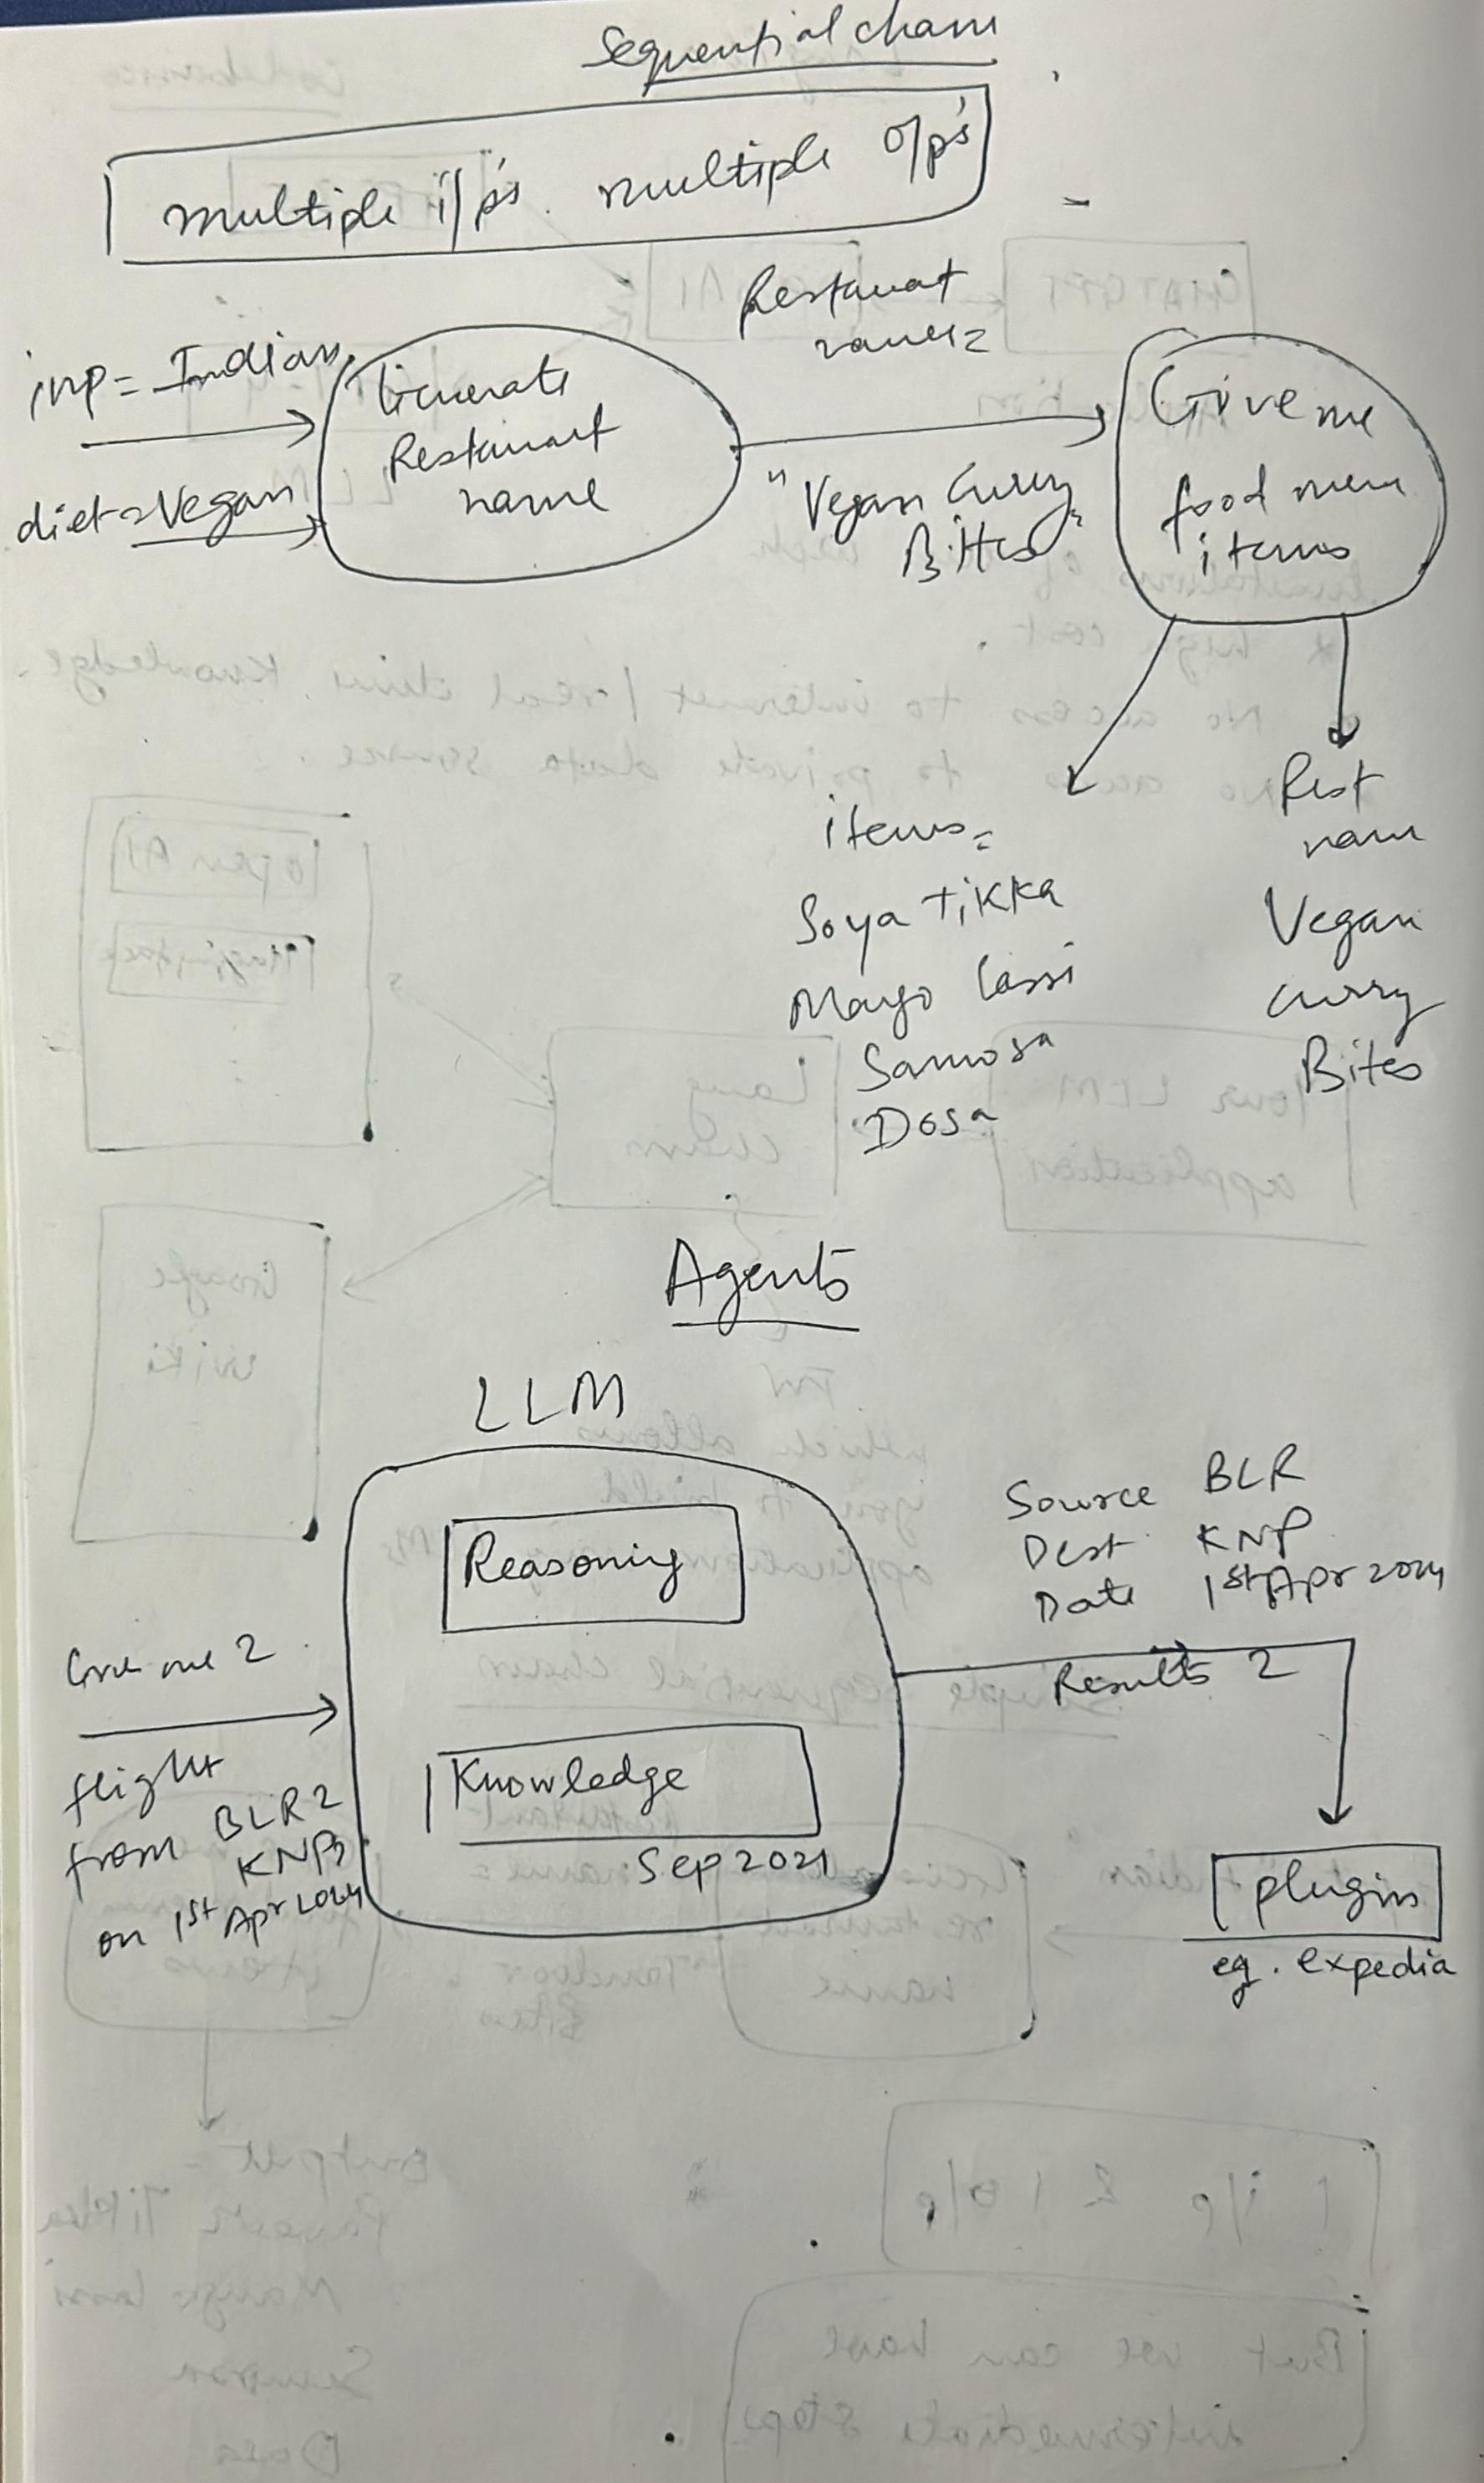 Sequential chain
multiple i/p's. multiple o/p's
inp = Indian
diet = Vegan
Generate
Restaurant
name
Restaurat
name =
"Vegan Curry
Bites"
Give me
food menu
items
items =
Soya Tikka
Mango lassi
Samosa
Dosa
Rest
name
Vegan
curry
Bites
Agents
LLM
Reasoning
Knowledge
Sep 2021
Give me 2
flight
from BLR 2
KNP
on 1st Apr 2024
Source BLR
Dest KNP
Date 1st Apr 2024
Results 2
plugins
eg. expedia